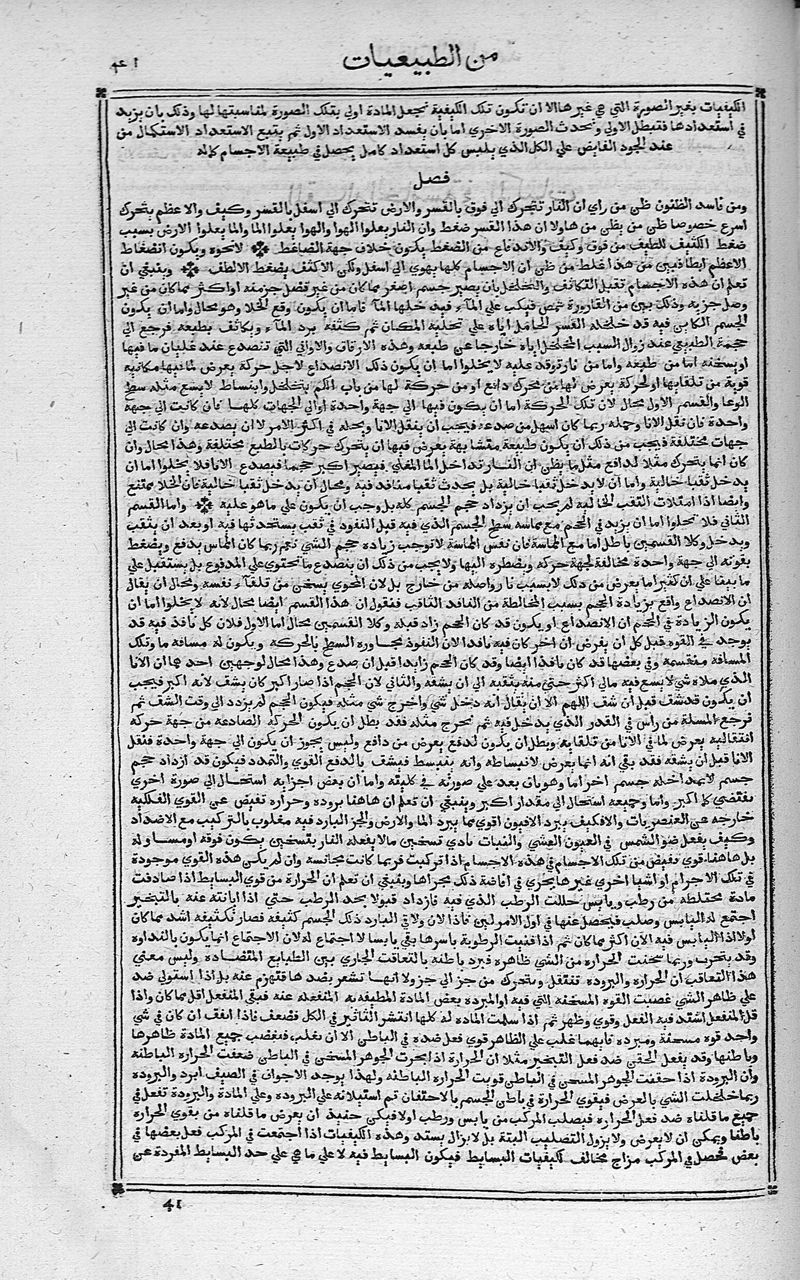 من الطبيعيات
الكيفيات بغير الصورة التي هي غيرها الا ان تكون تلك الكيفية تجعل المادة اولي بتلك الصورة لمناسبتها لها وذلك بان يزيد
في استعدادها فتبطل الاولي وتحدث الصورة الاخري اما بان يفسد الاستعداد الاول ثم يتبع الاستعداد الاستكمال من
عند الجود الفايض علي الكل الذي يلبس كل استعداد كامل يحصل في طبيعة الاجسام كماله
فصل
ومن فاسد الظنون ظن من راي ان النار تتحرك الي فوق بالقسر والارض تتحرك الي اسفل بالقسر وكيف والاعظم يتحرك
اسرع خصوصا ظن من يظن من هاولا ان هذا القسر ضغط وان النار يعلوا الهوا والهوا يعلوا الما والما يعلوا الارض بسبب
ضغط الكثيف للطيف من فوق وكيف والاندفاع من الضغط يكون خلاف جهة الضاغط لا نحوه ويكون انضغاط
الاعظم ابطا فبين من هذا غلط من ظن ان الاجسام كلها يهوي الي اسفل ولكن الاكثف يضغط الالطف وينبغي ان
تعلم ان هذه الاجسام تقبل التكاثف والتخلخل بان يصير جسم اصغر مما كان من غير فصل جزء منه او اكثر مما كان من غير
وصل جزء به وذلك بين من القارورة تمص فيكب علي الماء فيدخلها الماء فاما ان يكون وقع الخلا وهو محال واما ان يكون
الجسم الكاين فيه قد خلخله القسر الحامل اياه علي تخلية المكان ثم كثفه برد الماء وبكاثف بطبعه فرجع الي
حجمه الطبيعي عند زوال السبب المخلخل اياه خارجا عن طبعه وهذه الازقاق والاواني التي تنصدع عند غليان ما فيها
او تسخنه اما من طبعه واما من نار توقد عليه لا يخلوا اما ان يكون ذلك الانصداع لاجل حركة يعرض لما فيها مكانيه
قوية من تلقايها او لحركة يعرض لها من محرك دافع او من حركة لها من باب الكم بتخلخل وانبساط لا يسع مثله سطح
الوعا والقسم الاول محال لان تلك الحركة اما ان يكون فيها الي جهة واحدة او الي الجهات كلها فان كانت الي جهة
واحدة فان نقل الانا وحمله ربما كان اسهل من صدعه فيجب ان ينقل الانا ويحمله في اكثر الامر لا ان يصدعه وان كانت الي
جهات مختلفة فيجب من ذلك ان يكون طبيعة متشابهة يعرض فيها ان يتحرك حركات بالطبع مختلفة وهذا محال وان
كان انما يتحرك مثلا لدافع مثل ما يظن ان النار تداخل الما المغلي فيصير اكبر حجما فيصدع الانا فلا يخلوا اما ان
يدخل ثقبا خالية واما ان لا يدخل ثقبا خالية بل يحدث ثقبا منافذ فيه ومحال ان يدخل ثقبا خالية فان الخلا ممتنع
وايضا اذا امتلات الثقب الخاليه لم يجب ان يزداد حجم الجسم كله بل وجب ان يكون علي ما هو عليه واما القسم
الثاني فلا تخلوا اما ان يزيد في الحجم مع مماسه سطح الجسم الذي فيه قبل النفوذ في ثقب يستحدثها فيه او بعد ان يثقب
ويدخل وكلا القسمين باطل اما مع المماسة فان نفس المماسة لا توجب زياده حجم الشي نعم ربما كان المماس يدفع ويضغط
بقوته الي جهة واحدة مخالفة لجهة حركه ويضطره اليها ولا يجب من ذلك ان ينصدع ما تحتوي علي المدفوع بل يستقبل علي
ما بينا علي ان كثيرا ما يعرض من ذلك لا بسبب نار واصله من خارج بل لان المحوي يسخن من تلقاء نفسه ومحال ان يقال
ان الانصداع واقع بزيادة الحجم بسبب المخالطة من النافد الثاقب فنقول ان هذا القسم ايضا محال لانه لا يخلوا اما ان
يكون الزيادة في الحجم ان الانصداع او يكون قد كان الحجم زاد قبله وكلا القسمين محال اما الاول فلان كل نافذ فيه قد
يوجد في القوه قبل كل ان يفرض ان اخر كان فيه نافدا لان النفوذ مجاوره السطح بالحركه ويكون له مسافه ما وتلك
المسافه منقسمه وفي بعضها قد كان نافذا ايضا وقد كان الحجم زايدا قبل ان صدع وهذا محال لوجهين احدهما ان الانا
الذي ملاه شي لا يسع فيه مالي اكثر حتي منه يثقبه الي ان يشقه والثاني لان الحجم اذا صار اكبر كان يشق لانه اكبر فيجب
ان يكون قد شق قبل ان شق اللهم الا ان يقال انه دخل شي واخرج شي مثله فيكون الحجم لم يزدد الي وقت الشق ثم
ترجع المسلة من راس في القدر الذي يدخل فيه ثم يخرج مثله فقد بطل ان يكون الحركه الصادعه من جهة حركه
انتقاليه يعرض لما في الانا من تلقايه وبطل ان يكون لدفع يعرض من دافع وليس يجوز ان يكون الي جهة واحدة فنقل
الانا قبل ان يشقه فقد بقي انه انما يعرض لانبساطه وانه ينبسط فيشق بالدفع القوي والتمدد فيكون قد ازداد حجم
جسم لا بمداخله جسم اخر اما وهو باق بعد علي صورته في كليته واما ان بعض اجزايه استحال الي صورة اخري
يقتضي كما اكبر واما وجميعه استحال الي مقدار اكبر وينبغي ان تعلم ان هاهنا بروده وحراره تفيض عن القوي الفلكيه
خارجه عن العنصريات والا فكيف يبرد الافيون اقوي مما يبرد الما والارض والجز البارد فيه مغلوب بالتركيب مع الاضداد
وكيف يفعل ضو الشمس في العيون العشي والنبات بادي تسخين ما لا يفعله النار بتسخين يكون فوقه او مساو له
بل هاهنا قوي تفيض من تلك الاجسام في هذه الاجسام اذا تركبت فربما كانت مجانسه وان لم يكن هذه القوي موجودة
في تلك الاجرام او اشيا اخري غيرها يجري في افاضة ذلك مجراها وينبغي ان تعلم ان الحرارة من قوي البسايط اذا صادفت
مادة مختلطه من رطب ويابس حللت الرطب الذي فيه فازداد قبولا بحد الرطب حتي اذا ابانته عنه بالتبخير
اجتمع له اليابس وصلب فيحصل عنها في اول الامر لين فاذا لان ولاقي البارد ذلك الجسم كثيفه فصار تكثيفه اشد مما كان
اولا اذ اليابس فيه الان اكثر مما كان ثم اذا فنيت الرطوبة باسرها بقي يابسا لا اجتماع له لان الاجتماع انما يكون بالنداوه
وقد يتحرب وربما سخنت الحراره من الشي ظاهره فبرد باطنه بالتعاقب الجاري بين الطبايع المتضاده وليس معني
هذا التعاقب ان الحراره والبروده تنتقل ويتحرك من جز الي جز ولا انها تشعر بضدها فتهزم عنه بل اذا استولي ضد
علي ظاهر الشي غصبت القوه المسخنه التي فيه او المبرده بعض المادة المطيفه به المنفعله عنه فبقي المنفعل اقل مما كان واذا
قل المنفعل اشتد فيه الفعل وقوي وظهر ثم اذا سلمت الماده له كلها انتشر التاثير في الكل فضعف فاذا اتفق ان كان في شي
واحد قوه مسخنة ومبرده فايهما غلب علي الظاهر قوي فعل ضده في الباطن الا ان يغلب فيغصب جميع المادة ظاهرها
وباطنها وقد يفعل الحقن ضد فعل التبخير مثلا ان الحرارة اذا بخرت الجوهر المسخن في الباطن ضعفت الحراره الباطنه
وان البرودة اذا حقنت الجوهر المسخن في الباطن قويت الحراره الباطنه ولهذا يوجد الاجواف في الصيف ابرد والبروده
ربما خلخلت الشي بالعرض فيقوي الحرارة في باطن الجسم بالاحتقان ثم استيلايه علي البروده وعلي المادة والبرودة تفعل في
جميع ما قلناه ضد فعل الحراره فيصلب المركب من يابس ورطب اولا فيكن حنيد ان يعرض ما قلناه من بقوي الحراره
باطنا ويمكن ان لا يعرض ولا يزول التصليب البتة بل لا يزال يستد وهذه الكيفيات اذا اجتمعت في المركب فعل بعضها في
بعض تحصل في المركب مزاج مخالف لكيفيات البسايط فيكون البسايط فيه لا علي ما هي علي حد البسايط المفردة عن
41